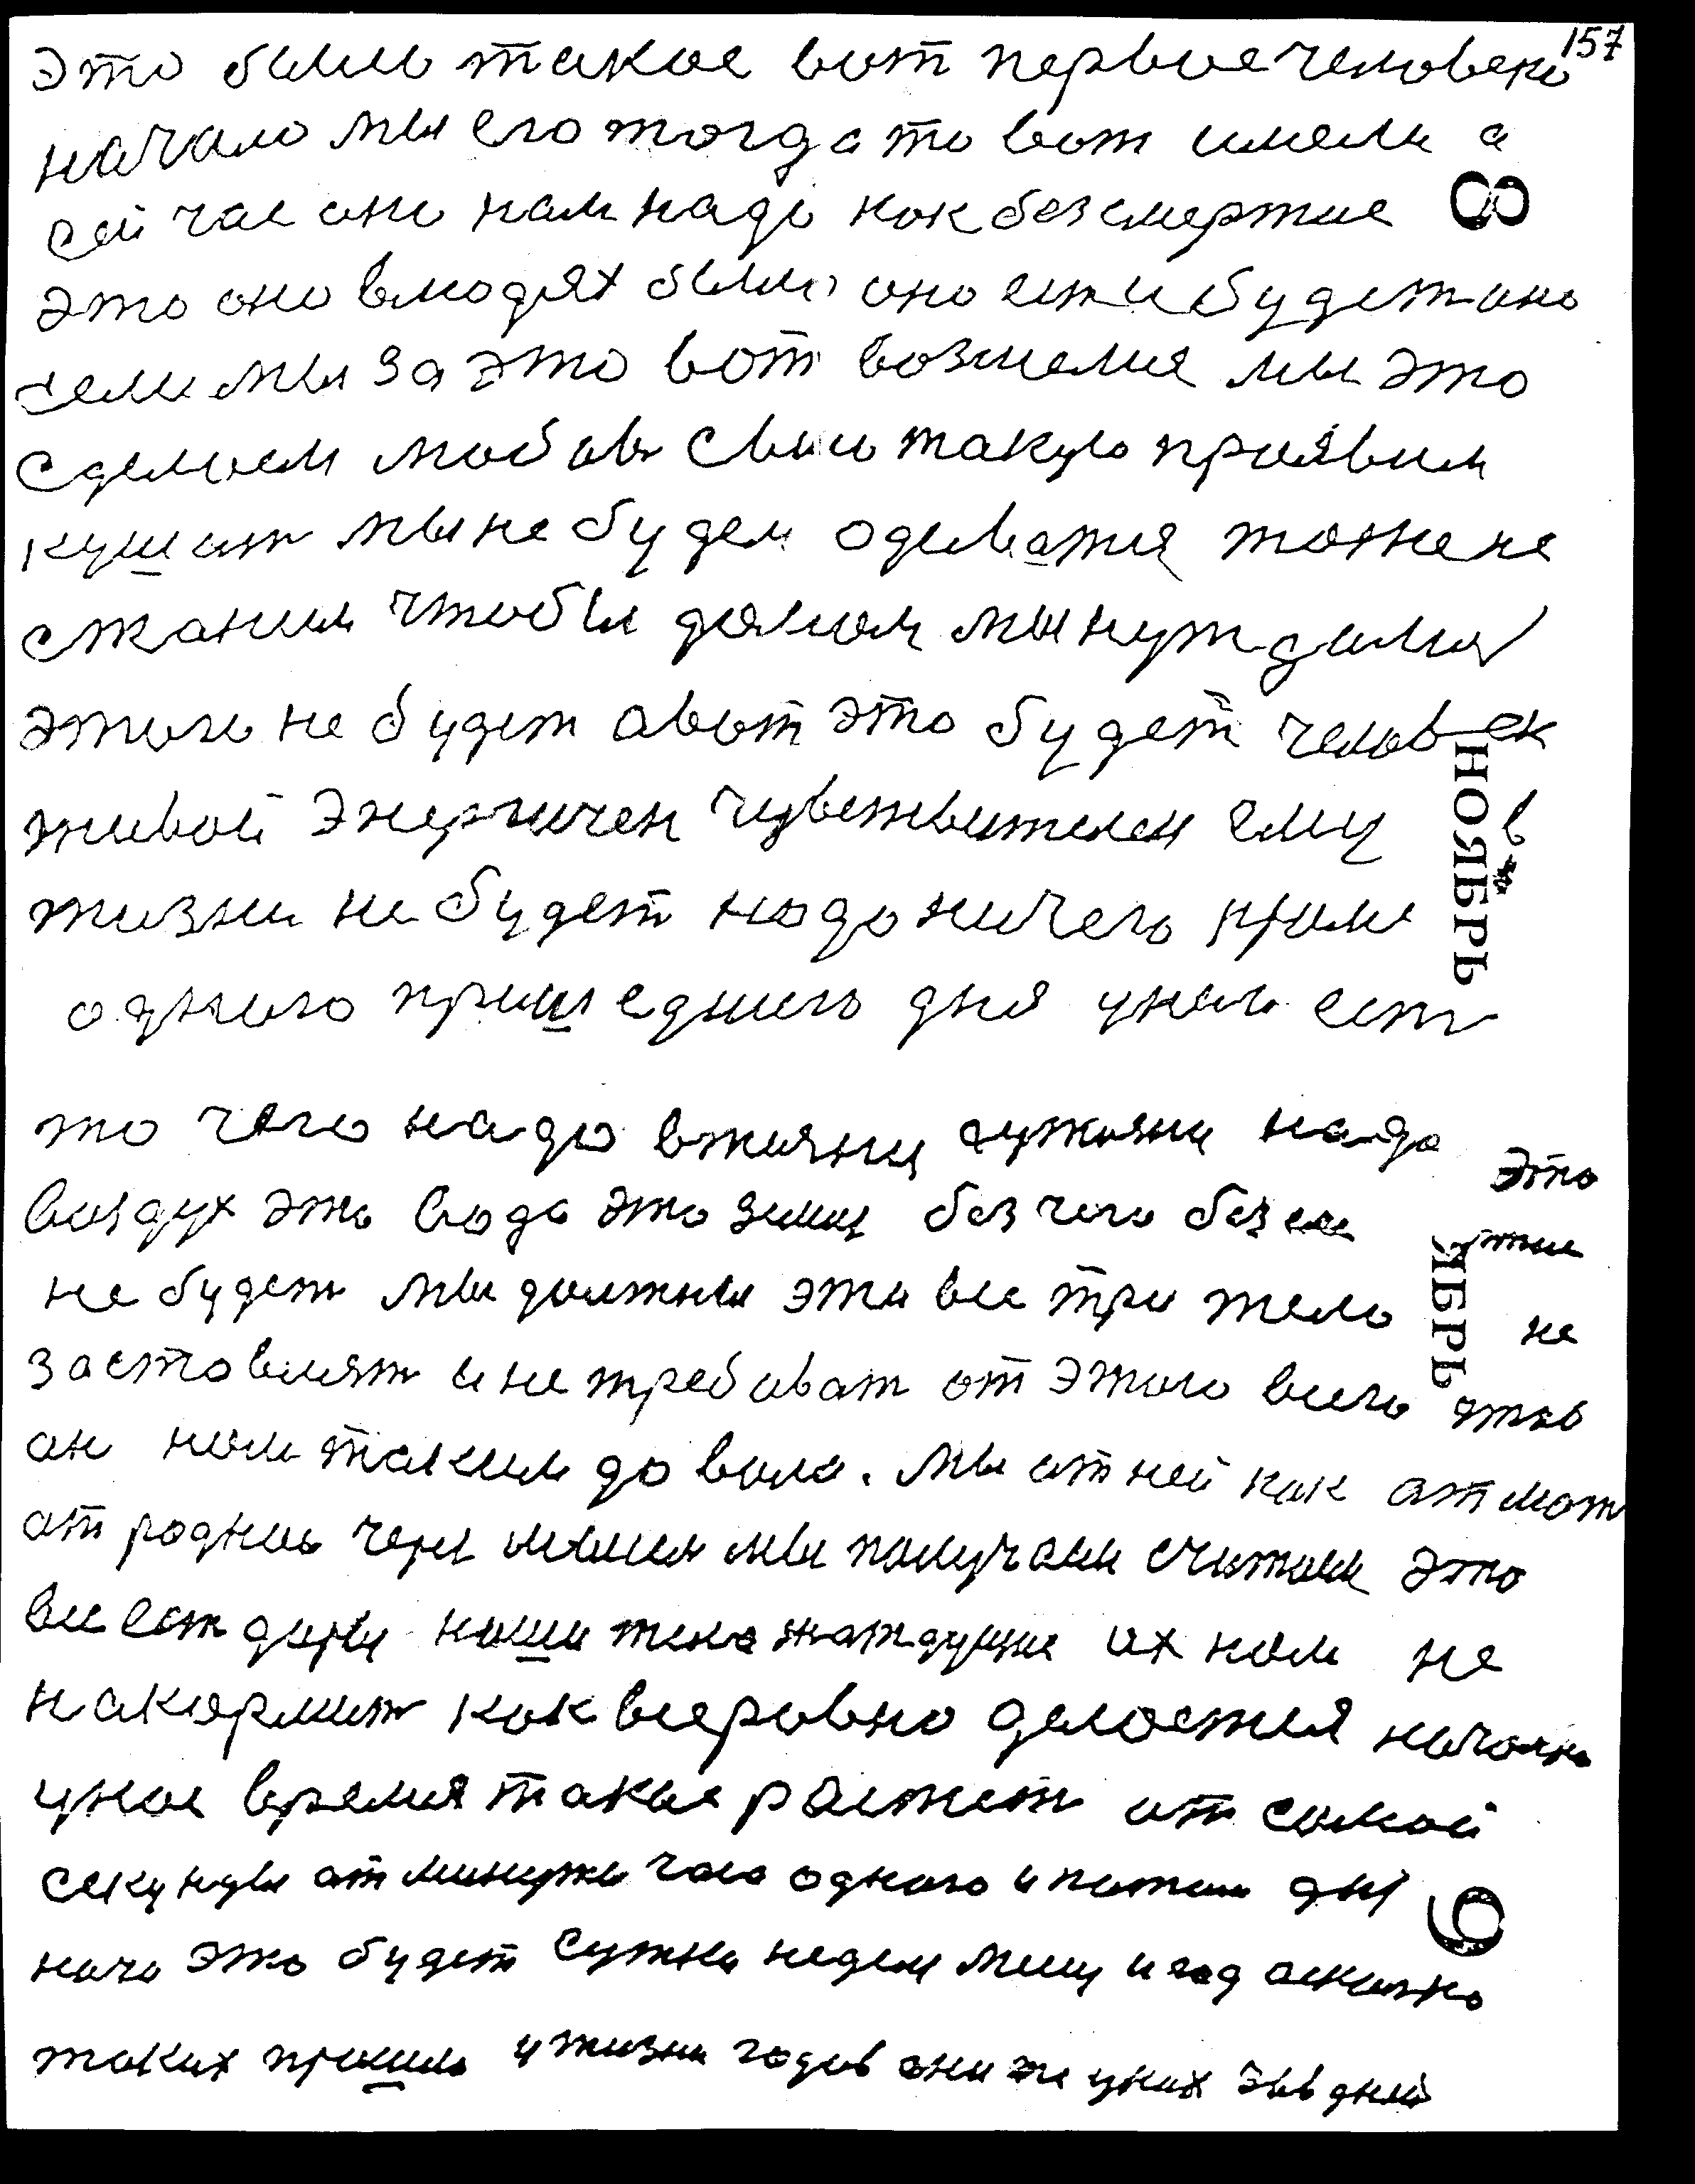 157
это было такое вот первое человеко
начало мы его тогда то вот имели а
сейчас оно нам надо как безсмертие
8
это оно в людях было оно ест и будет оно
если мы за это вот возмемся мы это
сделаем любовь свою такую проявим
кушат мы не будем одеватся тоже не
станим чтобы домом мы нуждалися
этого не будет а вот это будет человек
НОЯБРЬ
живой энергичен чувствителен ему в
жизни не будет надо ничего кроме
одного пришедшего дня у него ест
то чего надо в жизни надо это
воздух это вода это земля без чего безсмертие
не будет мы должны эти все три тела не
ЯБРЬ
заставлят и не требоват от этого всего чтоб
он нам таким давала. мы от ней как от мат
от родной через мы получаем считаем это
все ест дары наши тела жаждущие их нам не
накормит как все ровно делается начала
у нас время такое растет от самой
секунды от минуты часа одного и потом дня
9
ноча это будет сутки недел и год сколко
таких прошло у жизни годов они же у них дней